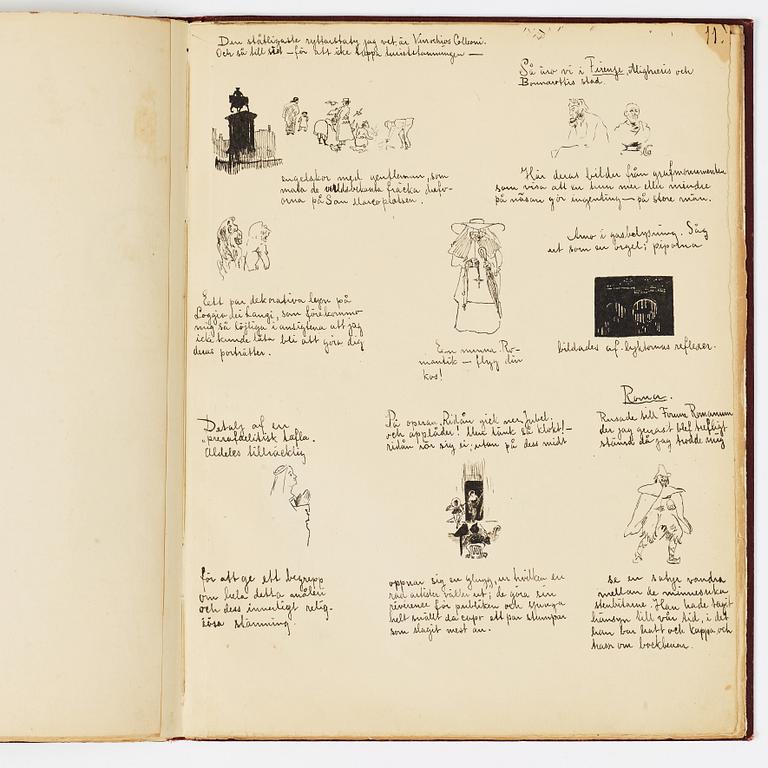 11.
Den ståtligaste ryttarstaty jag vet är Verrochios Colleoni.
Och så till sist – för att icke tappa turiststämningen –
engelskor med gentlemän, som
mata de världsbekanta fräcka dufvorna
på San Marcoplatsen.
Så äro vi i Firenze, Alighieris och
Bounarottis stad.
Här deras bilder från grafmonumenten
som visa att en hvar mer eller mindre
på näsan gör engenting – på store män.
Ett par dekorativa lejon på
Loggia dei Lanzi, som förekommo
mig så löjliga i ansigtena att jag
icke kunde låta bli att göra dig
deras porträtter.
En munna. Ro-
mantik – flyg din
kos!
Arno i gasbelysning. Såg
ut som en orgel; piporna
bildades af lyktornas reflexer.
Detalj af en
"prerafaelitisk tafla.
Aldeles tillräcklig
för att ge ett begrepp
om hela detta måleri
och dess innerligt relig-
iösa stämning.
På operan. Ridån gick ner. Jubel
och applåder! Men tänk så klokt! –
ridån rör sig ej, utan på dess midt
oppnar sig en glugg, ur hvilken en
rad artister väller ut; de göra sin
reverence för publiken och sjunga
helt snällt da capo ett par stumpar
som slagit mest an.
Roma.
Rusade till Forum Romanum
der jag genast blef häftigt
stämd då jag trodde mig
se en satyr vandra
mellan de menniskika
stenbitarne. Han hade tagit
hänsyn till vår tid, i det
han bar hatt och kappa och
trasor om bockbenen.